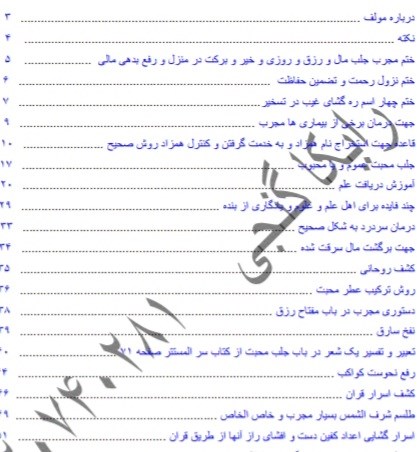 درباره مولف ........................ ۳
نکته ........................ ۴
ختم مجرب جلب مال و رزق و روزی و خیر و برکت در منزل و رفع بدهی مالی ................ ۵
ختم نزول رحمت و تضمین حفاظت ........................ ۶
ختم چهار اسم ره گشای غیب در تسخیر ........................ ۷
جهت درمان برخی از بیماری ها مجرب ........................ ۹
قاعده جهت استخراج نام همزاد و به خدمت گرفتن و کنترل همزاد روش صحیح ................ ۱۰
جلب محبت عموم و یا محبوب ........................ ۱۷
آموزش دریافت علم ........................ ۲۰
چند فایده برای اهل علم و علوم و یادگاری از بنده ........................ ۲۹
درمان سردرد به شکل صحیح ........................ ۳۳
جهت برگشت مال سرقت شده ........................ ۳۴
کشف روحانی ........................ ۳۵
روش ترکیب عطر محبت ........................ ۳۶
دستوری مجرب در باب مفتاح رزق ........................ ۳۸
نفخ سارق ........................ ۳۹
تعبیر و تفسیر یک شعر در باب جلب محبت از کتاب سر المستتر صفحه ۷۱ ................
رفع نحوست کواکب ........................
کشف اسرار قران ........................
طلسم شرف الشمس بسیار مجرب و خاص الخاص ........................
اسرار گشایی اعداد کفین دست و افشای راز آنها از طریق قران ................
رایگانجی